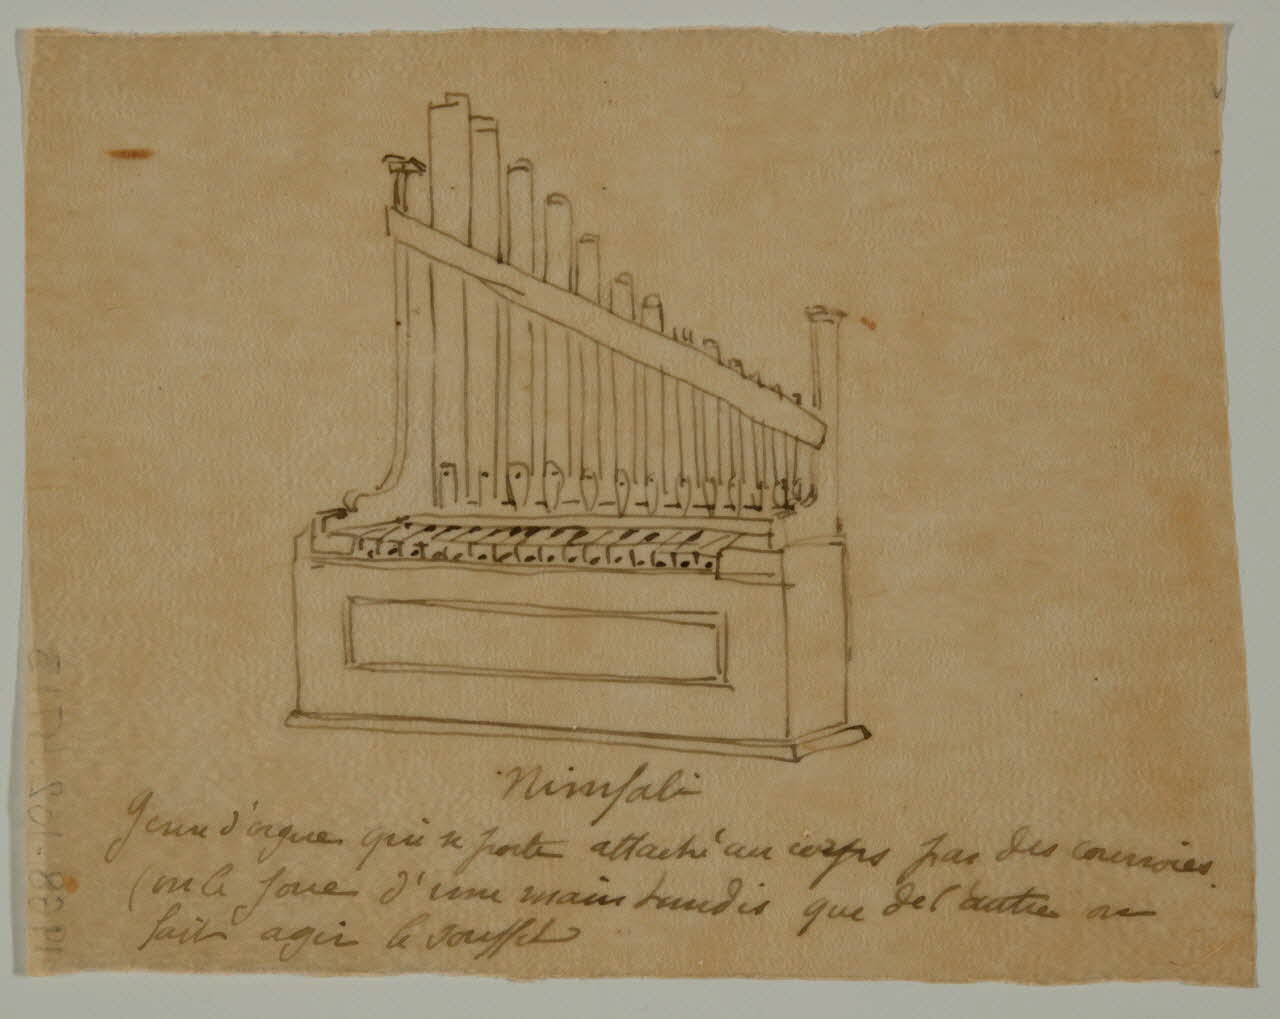 Nimfali
Genre d'orgue qui se porte attaché au corps par des courroies.
(on le joue d'une main tandis que de l'autre on
fait agir le soufflet